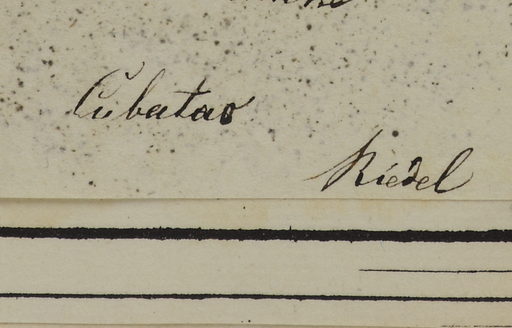 Cubatao
Riedel